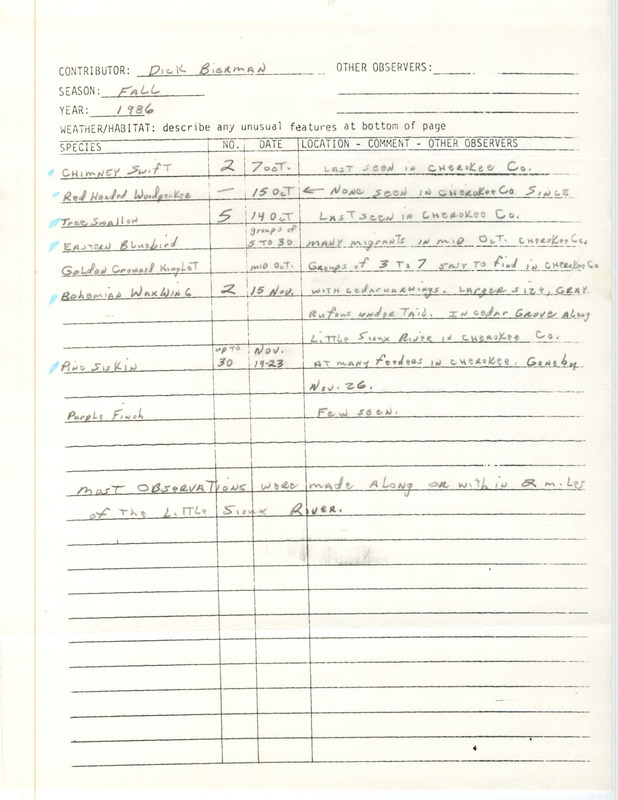 CONTRIBUTOR: Dick Bierman OTHER OBSERVERS:
SEASON: FALL
YEAR: 1986
WEATHER/HABITAT: describe any unusual features at bottom of page
SPECIES NO. DATE LOCATION - COMMENT - OTHER OBSERVERS
CHIMNEY SWIFT 2 7 OCT. LAST SEEN IN CHEROKEE Co.
Red Headed Woodpecker — 15 OCT ← NONE SEEN IN CHEROKEE Co SINCE
Tree Swallow 5 14 OCT LAST SEEN IN CHEROKEE Co.
EASTERN Bluebird groups of 5 TO 30 MANY MIGRANTS IN MID OCT. CHEROKEE Co.
Golden Crowned Kinglet MID OCT. Groups of 3 To 7 EASY TO find IN CHEROKEE Co
Bohemian WAXWING 2 15 Nov. WITH CEDARWAXWINGS. LARGER SIZE, GRAY.
Rufous under Tail. IN CEDAR GROVE ALONG
LITTLE Sioux RIVER IN CHEROKEE Co.
Pine Siskin up TO 30 Nov. 19-23 AT MANY feeders IN CHEROKEE. Gone by
Nov. 26.
Purple Finch Few seen.
MOST OBSERVATIONS were made ALONG OR within 2 miles
of THE LITTLE Sioux River.